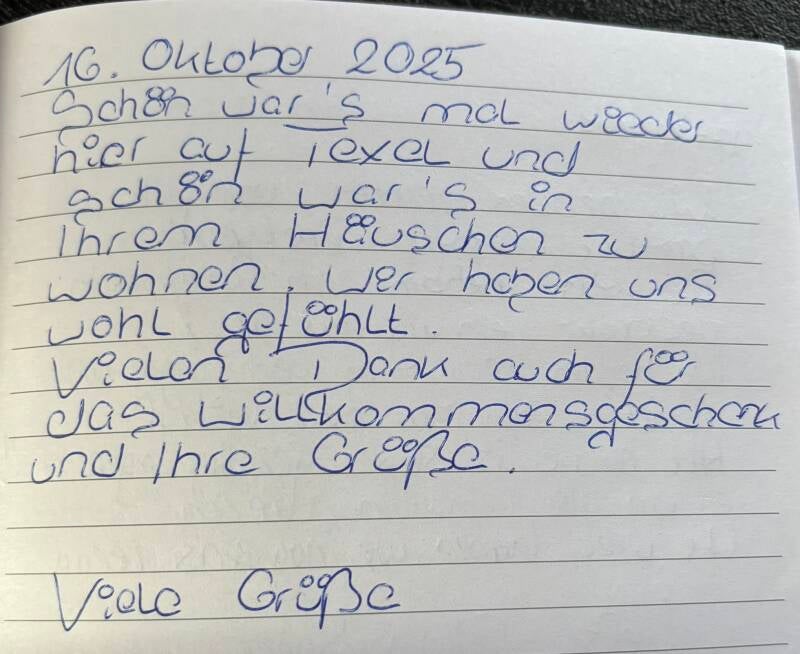 16. Oktober 2025
Schön war's mal wieder
hier auf Texel und
schön war's in
Ihrem Häuschen zu
wohnen. Wir haben uns
wohl gefühlt.
Vielen Dank auch für
das Willkommensgeschenk
und Ihre Grüße.
Viele Grüße